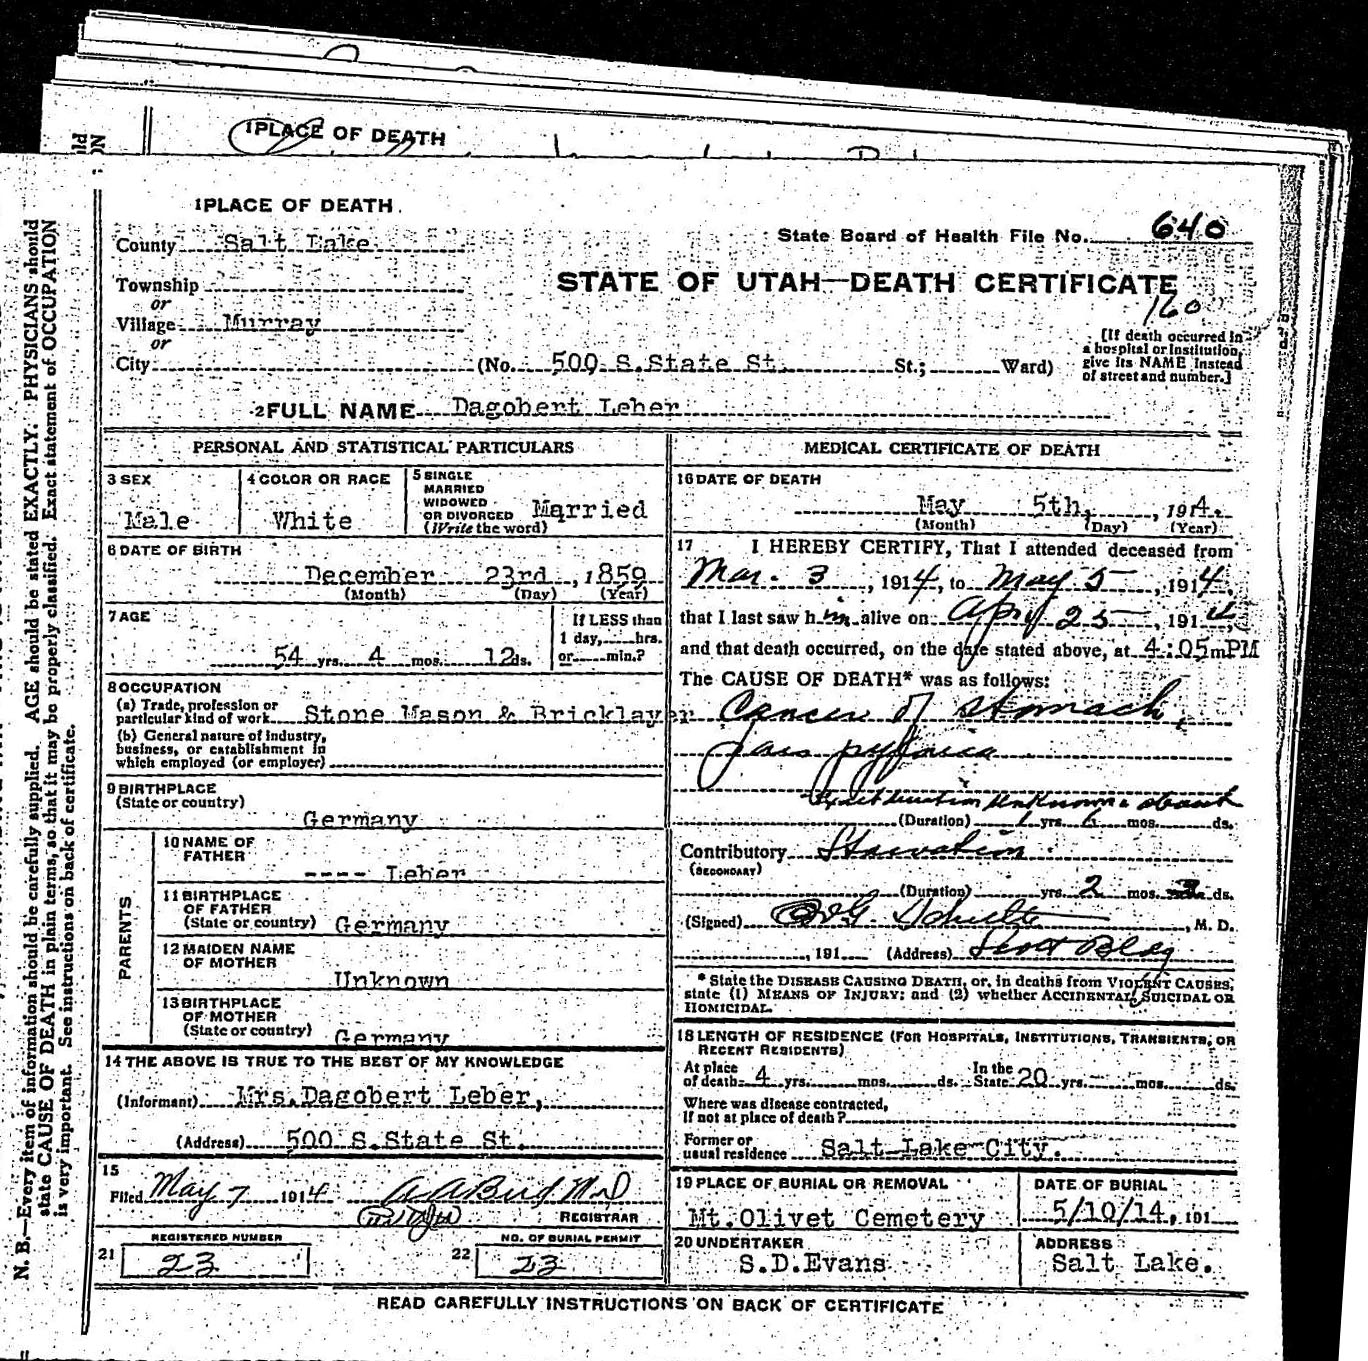 1 PLACE OF DEATH
1 PLACE OF DEATH.
County Salt Lake
State Board of Health File No. 640
Township
STATE OF UTAH—DEATH CERTIFICATE
160
or
Village Murray
or
City (No. 500 S.State St. St.; Ward)
[If death occurred in
a hospital or institution,
give its NAME instead
of street and number.]
2 FULL NAME Dagobert Leber
PERSONAL AND STATISTICAL PARTICULARS
3 SEX
Male
4 COLOR OR RACE
White
5 SINGLE
MARRIED
WIDOWED
OR DIVORCED
(Write the word)
Married
6 DATE OF BIRTH
December 23rd, 1859
(Month) (Day) (Year)
7 AGE
54 yrs. 4 mos. 12 ds.
If LESS than
1 day, hrs.
or min.?
8 OCCUPATION
(a) Trade, profession or
particular kind of work Stone Mason & Bricklayer
(b) General nature of industry,
business, or establishment in
which employed (or employer)
9 BIRTHPLACE
(State or country)
Germany
PARENTS
10 NAME OF
FATHER
---- Leber
11 BIRTHPLACE
OF FATHER
(State or country) Germany
12 MAIDEN NAME
OF MOTHER
Unknown
13 BIRTHPLACE
OF MOTHER
(State or country) Germany
14 THE ABOVE IS TRUE TO THE BEST OF MY KNOWLEDGE
(Informant) Mrs.Dagobert Leber,
(Address) 500 S.State St.
15
Filed May 7 1914 A A Bird MD
REGISTRAR
REGISTERED NUMBER
21 23
NO. OF BURIAL PERMIT
22 23
MEDICAL CERTIFICATE OF DEATH
16 DATE OF DEATH
May 5th, , 1914.
(Month) (Day) (Year)
17 I HEREBY CERTIFY, That I attended deceased from
Mar. 3 , 1914, to May 5 , 1914,
that I last saw him alive on April 25 , 1914,
and that death occurred, on the date stated above, at 4:05 m PM
The CAUSE OF DEATH* was as follows:
Cancer of stomach,
pars pylorica
Exact duration unknown about
(Duration) 1 yrs. 6 mos. ds.
Contributory Starvation
(SECONDARY)
(Duration) yrs. 2 mos. ds.
(Signed) Schulte , M. D.
, 191 (Address) Scott Bldg
* State the DISEASE CAUSING DEATH, or, in deaths from VIOLENT CAUSES,
state (1) MEANS OF INJURY; and (2) whether ACCIDENTAL, SUICIDAL OR
HOMICIDAL.
18 LENGTH OF RESIDENCE (FOR HOSPITALS, INSTITUTIONS, TRANSIENTS, OR
RECENT RESIDENTS)
At place
of death 4 yrs. mos. ds. In the
State 20 yrs. mos. ds.
Where was disease contracted,
if not at place of death?
Former or
usual residence Salt Lake City.
19 PLACE OF BURIAL OR REMOVAL
Mt.Olivet Cemetery
DATE OF BURIAL
5/10/14, 191
20 UNDERTAKER
S.D.Evans
ADDRESS
Salt Lake.
READ CAREFULLY INSTRUCTIONS ON BACK OF CERTIFICATE
N. B.—Every item of information should be carefully supplied. AGE should be stated EXACTLY. PHYSICIANS should
state CAUSE OF DEATH in plain terms, so that it may be properly classified. Exact statement of OCCUPATION
is very important. See instructions on back of certificate.